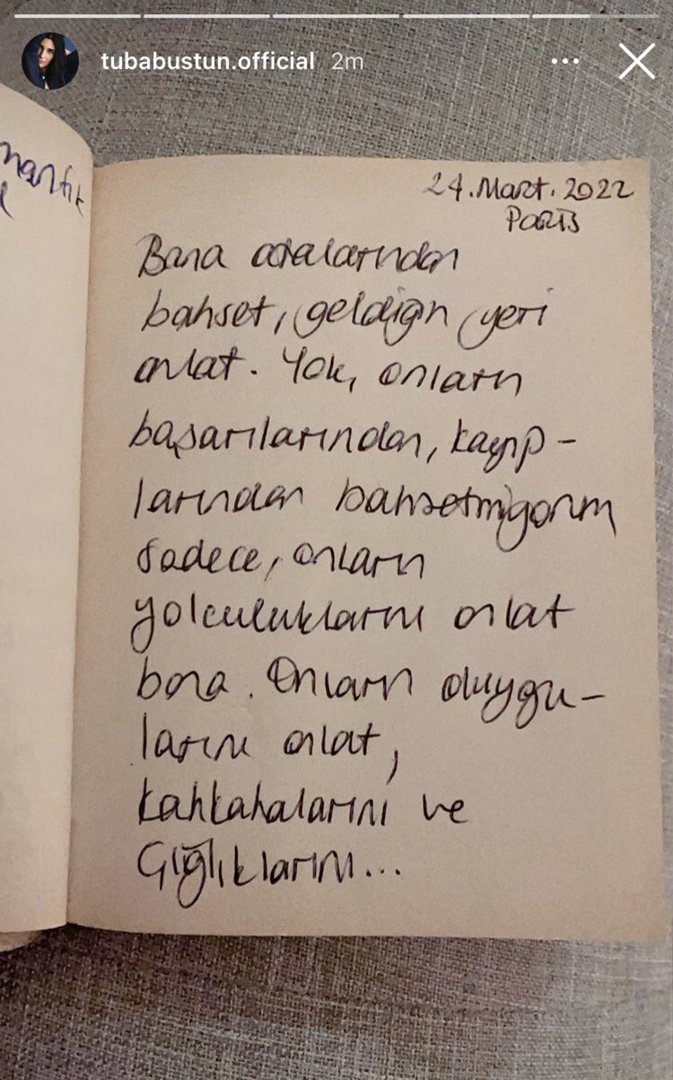 tubabustun.official 2m
24.Mart.2022
Paris
Bana atalarından
bahset, geldiğin yeri
anlat. Yok, onların
başarılarından, kayıp-
larından bahsetmiyorum
sadece, onların
yolculuklarını anlat
bana. Onların duygu-
larını anlat,
kahkahalarını ve
Çığlıklarını...